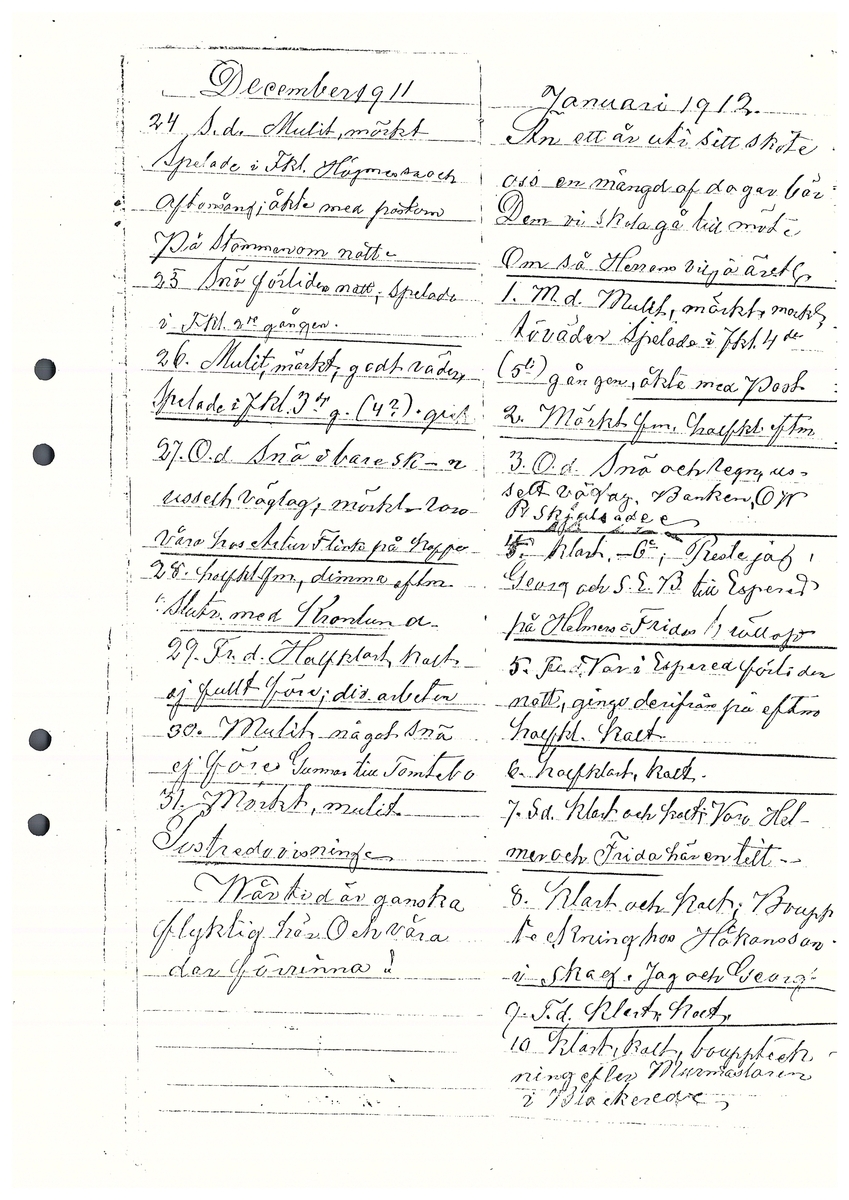 December 1911
24 S.d. Mulit, mörkt
Spelade i Fkl. Högmessa och
aftonsång; åkte med pastorn
På Stommen om natte
25 Snö förliden natt; spelade
i Fkl. 2re gången.
26. Mulit, mörkt, godt väder,
Spelade i Fkl. 3dje g. (4?).
27. O.d Snö å bare sk-n
usselt väglag; mörkt. Voro
våra hos Artur Flinks på Kaffe
28. halfkl. fm., dimma eftm.
Slutr. med Kronlund.
29. Fr. d. Halfklart, kalt
ej fullt före; div. arbeten
30. Mulit något snö
ej före Gunnar till Tomtebo
31. Mörkt, mulit.
Justredovisning
Wår tid är ganska
flyktig här Och våra
dar förrinna!
Januari 1912.
Än ett år uti sitt sköte
oss en mängd af dagar bär
Dem vi skola gå till möte
Om så Herrens vilja är
1. M d. Mulit, mörkt,
töväder Spelade i Fkl. 4de
(5te) gången, åkte med Post
2. Mörkt fm. halfkl. eftm
3. O.d. Snö och regn, us-
selt väglag. Banken, OW
R Skjutsade
4. Klart, -6°; Reste jag,
Georg och S.E.B till Espered
på Helmers o Fridas bröllop
5. Fre.d. Var i Espered förliden
natt, gingo derifrån på eftm
halfkl. kalt
6. halfklart, kalt.
7. Sd. Klart och kalt; Voro Hel-
mer och Frida här en titt --
8. Klart och kalt; Boupp
teckning hos Håkansson
i Skog. Jag och Georg
9. T.d. Klart, kalt,
10 Klart, kalt, bouppteck
ning efter Murmästaren
i Blackerede